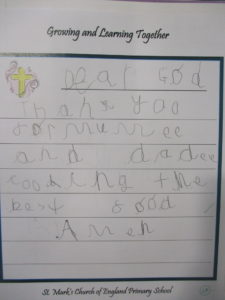 Growing and Learning Together
Dear God
Thank you
for mumee
and dadee
cooking the
best food
Amen
St. Mark's Church of England Primary School